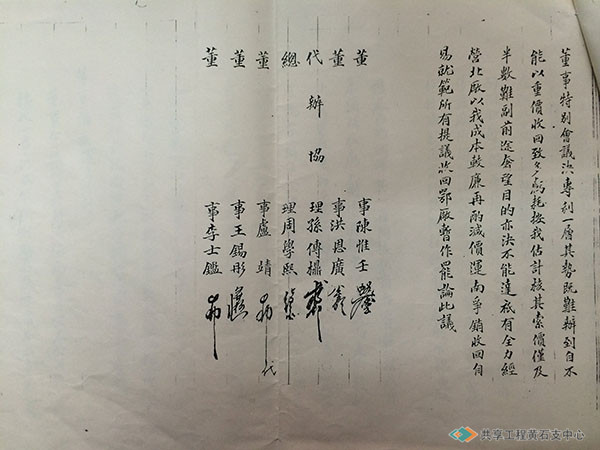 董事特別會議決專利一層其勢既難辦到自不
能以重價收回致多虧耗按我估計核其索價僅及
半數難副前途奢望目的亦決不能達祇有全力經
營北廠以我成本較廉再酌減價運南爭銷收回自
易就範所有提議收回鄂廠暫作罷論此議
董事陳惟壬
董事洪恩廣
代辦協理孫傳
總理周學熙
董事盧靖 代
董事王錫彤
董事李士鑑
共享工程黄石支中心